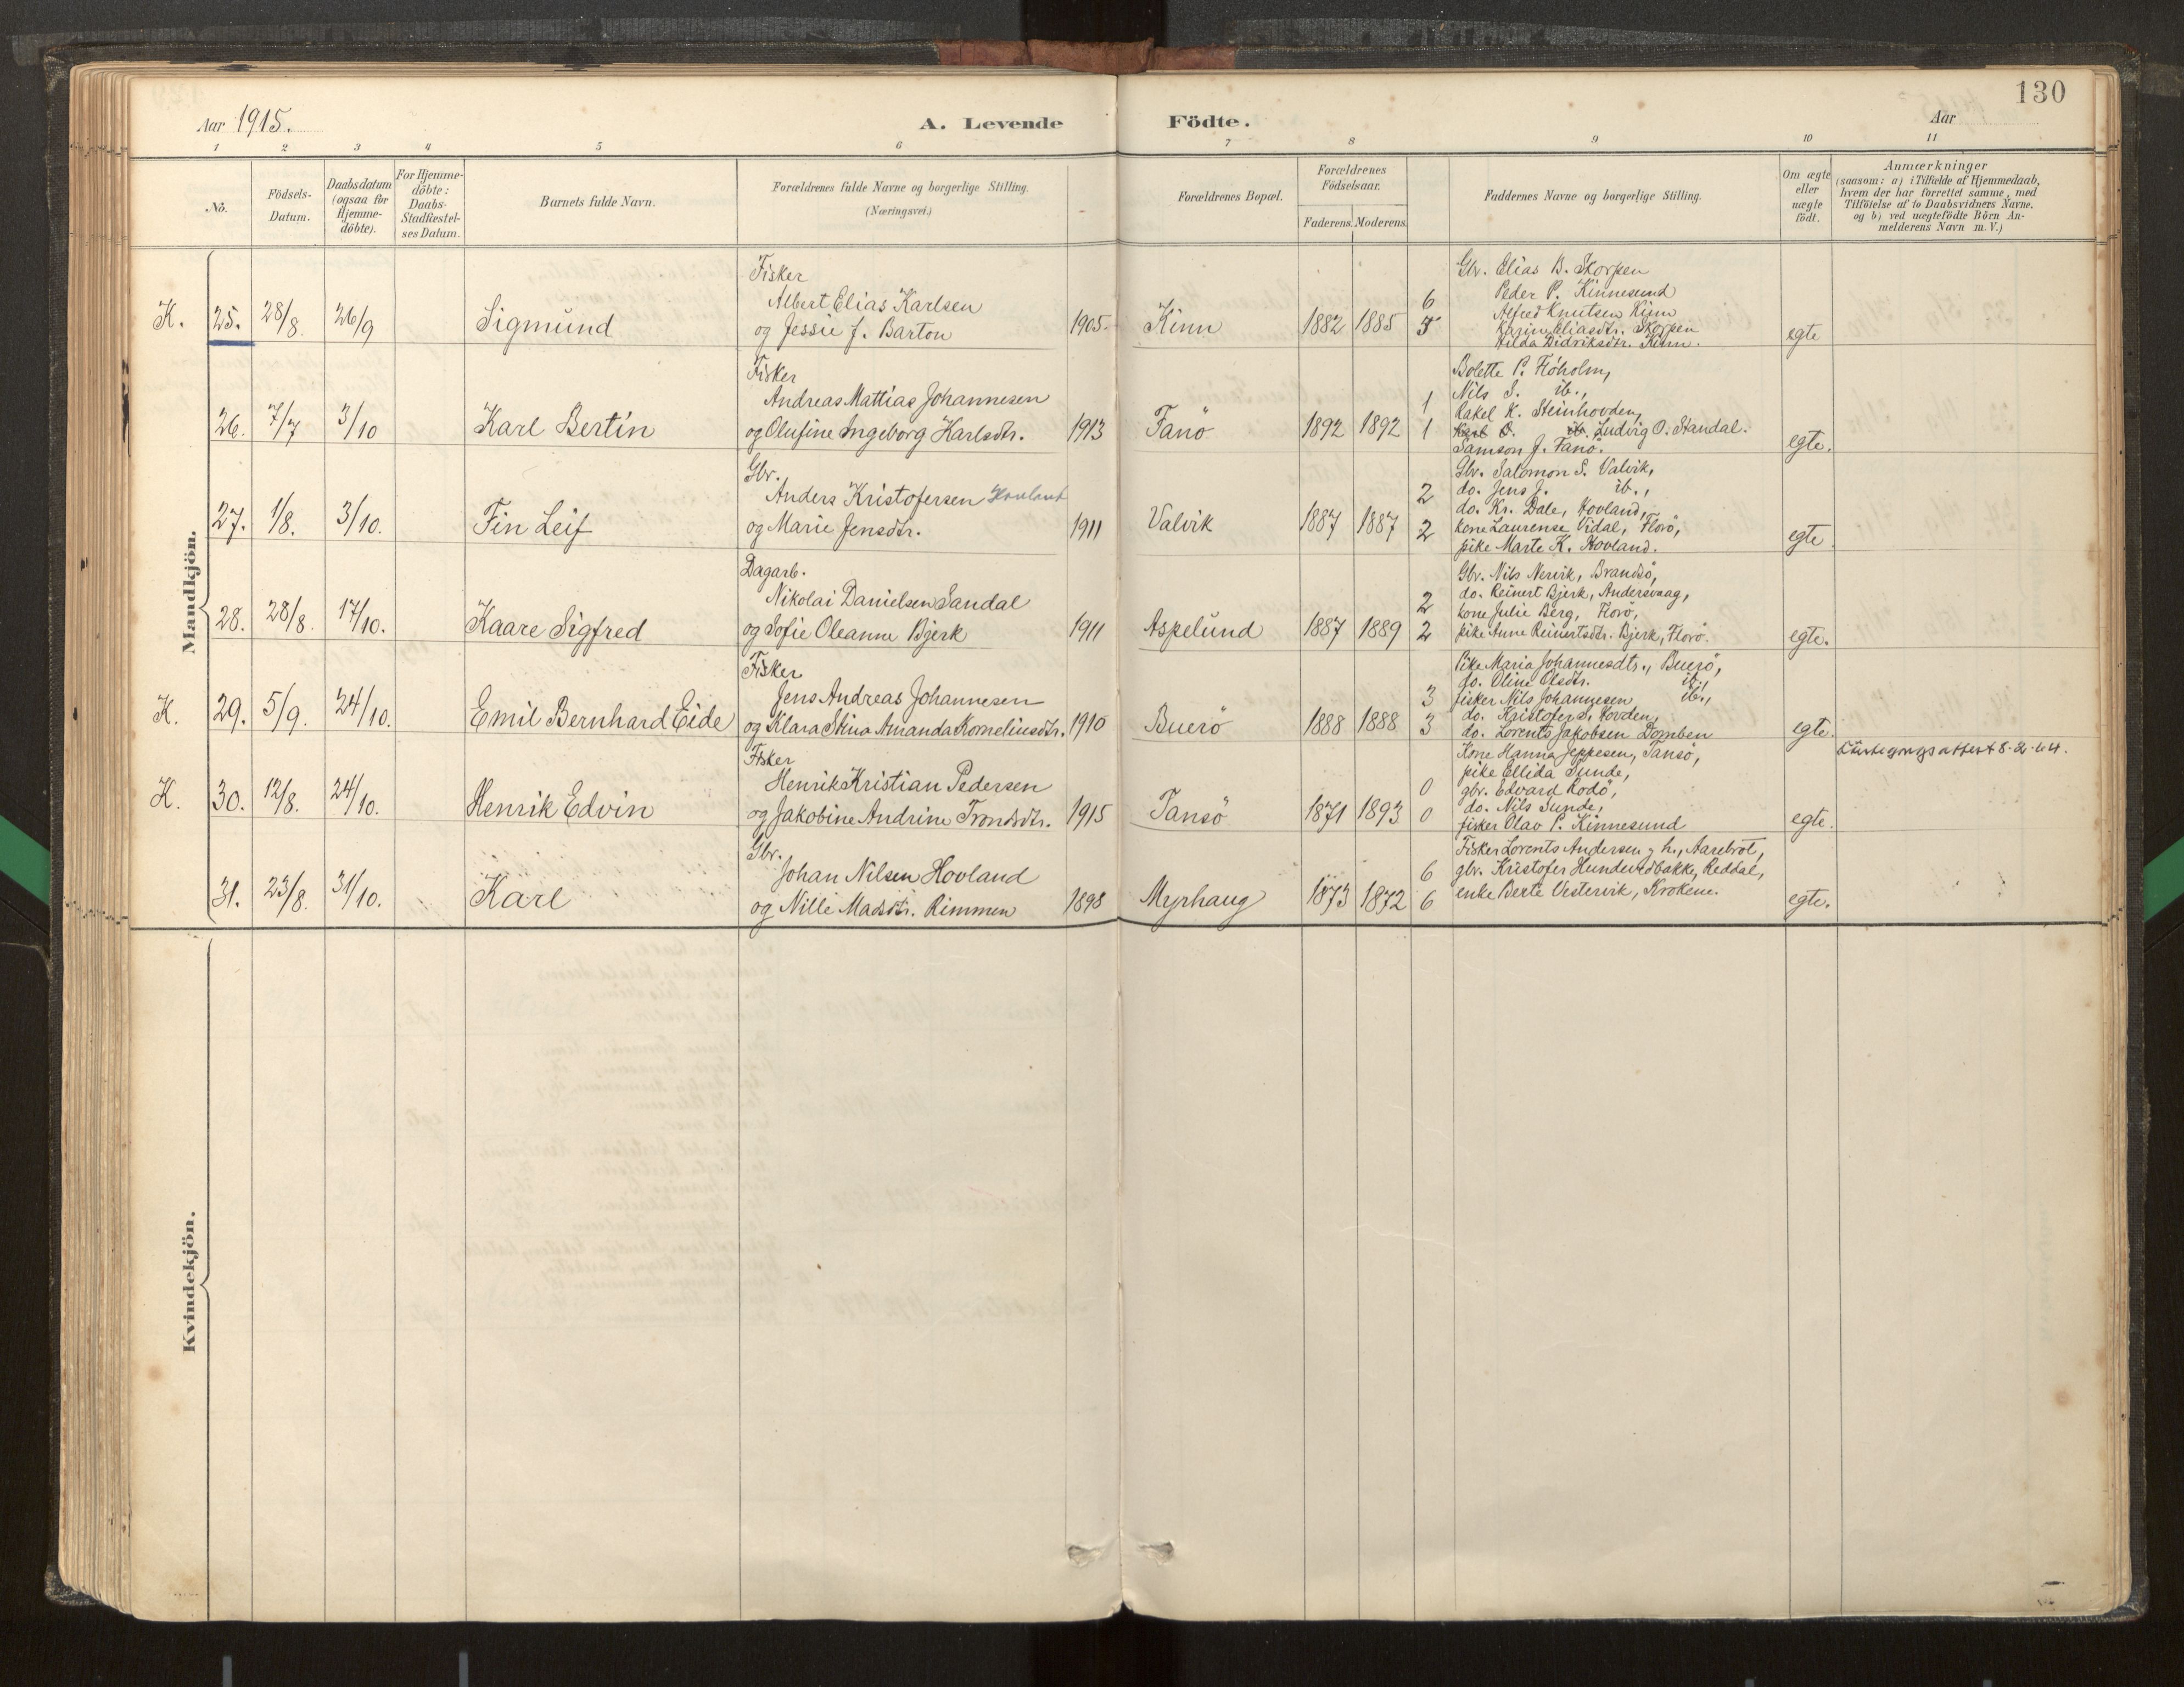 130
Aar 1915.
A. Levende Födte.
Aar
1 2 3 4 5 6 7 8 9 10 11
No.
Födsels-
Datum.
Daabsdatum
(ogsaa for
Hjemme-
döbte).
For Hjemme-
döbte:
Daabs-
Stadfæstel-
ses Datum.
Barnets fulde Navn.
Forældrenes fulde Navne og borgerlige Stilling.
(Næringsvei.)
Forældrenes Bopæl.
Forældrenes
Födselsaar.
Faderens. Moderens.
Faddernes Navne og borgerlige Stilling.
Om ægte
eller
uægte
födt.
Anmærkninger
(saasom: a) i Tilfælde af Hjemmedaab,
hvem der har forrettet samme, med
Tilföielse af to Daabsvidners Navne.
og b) ved uægtefödte Börn An-
melderens Navn m. V.)
Mandkjön.
K. 25. 28/8. 26/9 Sigmund
Fisker
Albert Elias Karlsen
og Jessie J. Barton 1905.
Kinn 1882 1885
6
3
Gbr. Elias B. Skorpen
Peder P. Kinnesund
Alfred Knutsen Kinn
Karine Eliasdtr. Skorpen
Hilda Didriksdtr. Kinn.
egte
26. 7/7 3/10 Karl Bertin
Fisker
Andreas Mattias Johannesen
og Olufine Ingeborg Karlsdtr. 1913
Fanö 1892 1892
1
1
Bolette P. Flöholm,
Nils S. ib.,
Rakel K. Steinhovden,
Karl O. ib. Ludvig O. Standal.
Samson J. Fanö.
egte.
27. 1/8. 3/10. Fin Leif
Gbr.
Anders Kristofersen Hovland
og Marie Jensdtr. 1911
Valvik 1887 1887
2
2
Gbr. Salomon S. Valvik,
do. Jens J. ib.,
do. Kr. Dale, Hovland,
kone Laurense Vidal, Florö,
pike Marte K. Hovland.
egte.
28. 28/8. 17/10. Kaare Sigfred
Dagarb.
Nikolai Danielsen Sandal
og Sofie Oleanne Bjerk 1911
Aspelund 1887 1889
2
2
Gbr. Nils Nervik, Brandsö,
do. Reinert Bjerk, Andersvaag,
kone Julie Berg, Florö,
pike Anne Reinertsdtr. Bjerk, Florö.
egte.
K. 29. 5/9. 24/10. Emil Bernhard Eide
Fisker
Jens Andreas Johannesen
og Klara Stina Amanda Korneliusdtr. 1910
Buerö 1888 1888
3
3
Pike Maria Johannesdtr., Buerö,
do. Oline Olsdtr. ib.,
fisker Nils Johannesen ib.,
do. Kristofer S. Hovden,
do. Lorents Jakobsen Domben
egte.
K. 30. 12/8. 24/10. Henrik Edvin
Fisker
Henrik Kristian Pedersen
og Jakobine Andrine Trondsdtr. 1915
Tansö 1871 1893
0
0
Kone Hanna Jeppesen, Tansö,
pike Ellida Sunde,
gbr. Edvard Rodö,
do. Nils Sunde,
fisker Olav P. Kinnesund
egte.
8-2-44.
31. 23/8. 31/10. Karl
Gbr.
Johan Nilsen Hovland
og Nille Madsdtr. Rimmen 1898
Myrhaug 1873 1872
6
6
Fisker Lorents Andersen g h., Aarebrot,
gbr. Kristofer Hundvedbakke, Reddal,
enke Berte Vestervik, Krokene.
egte.
Kvindekjön.